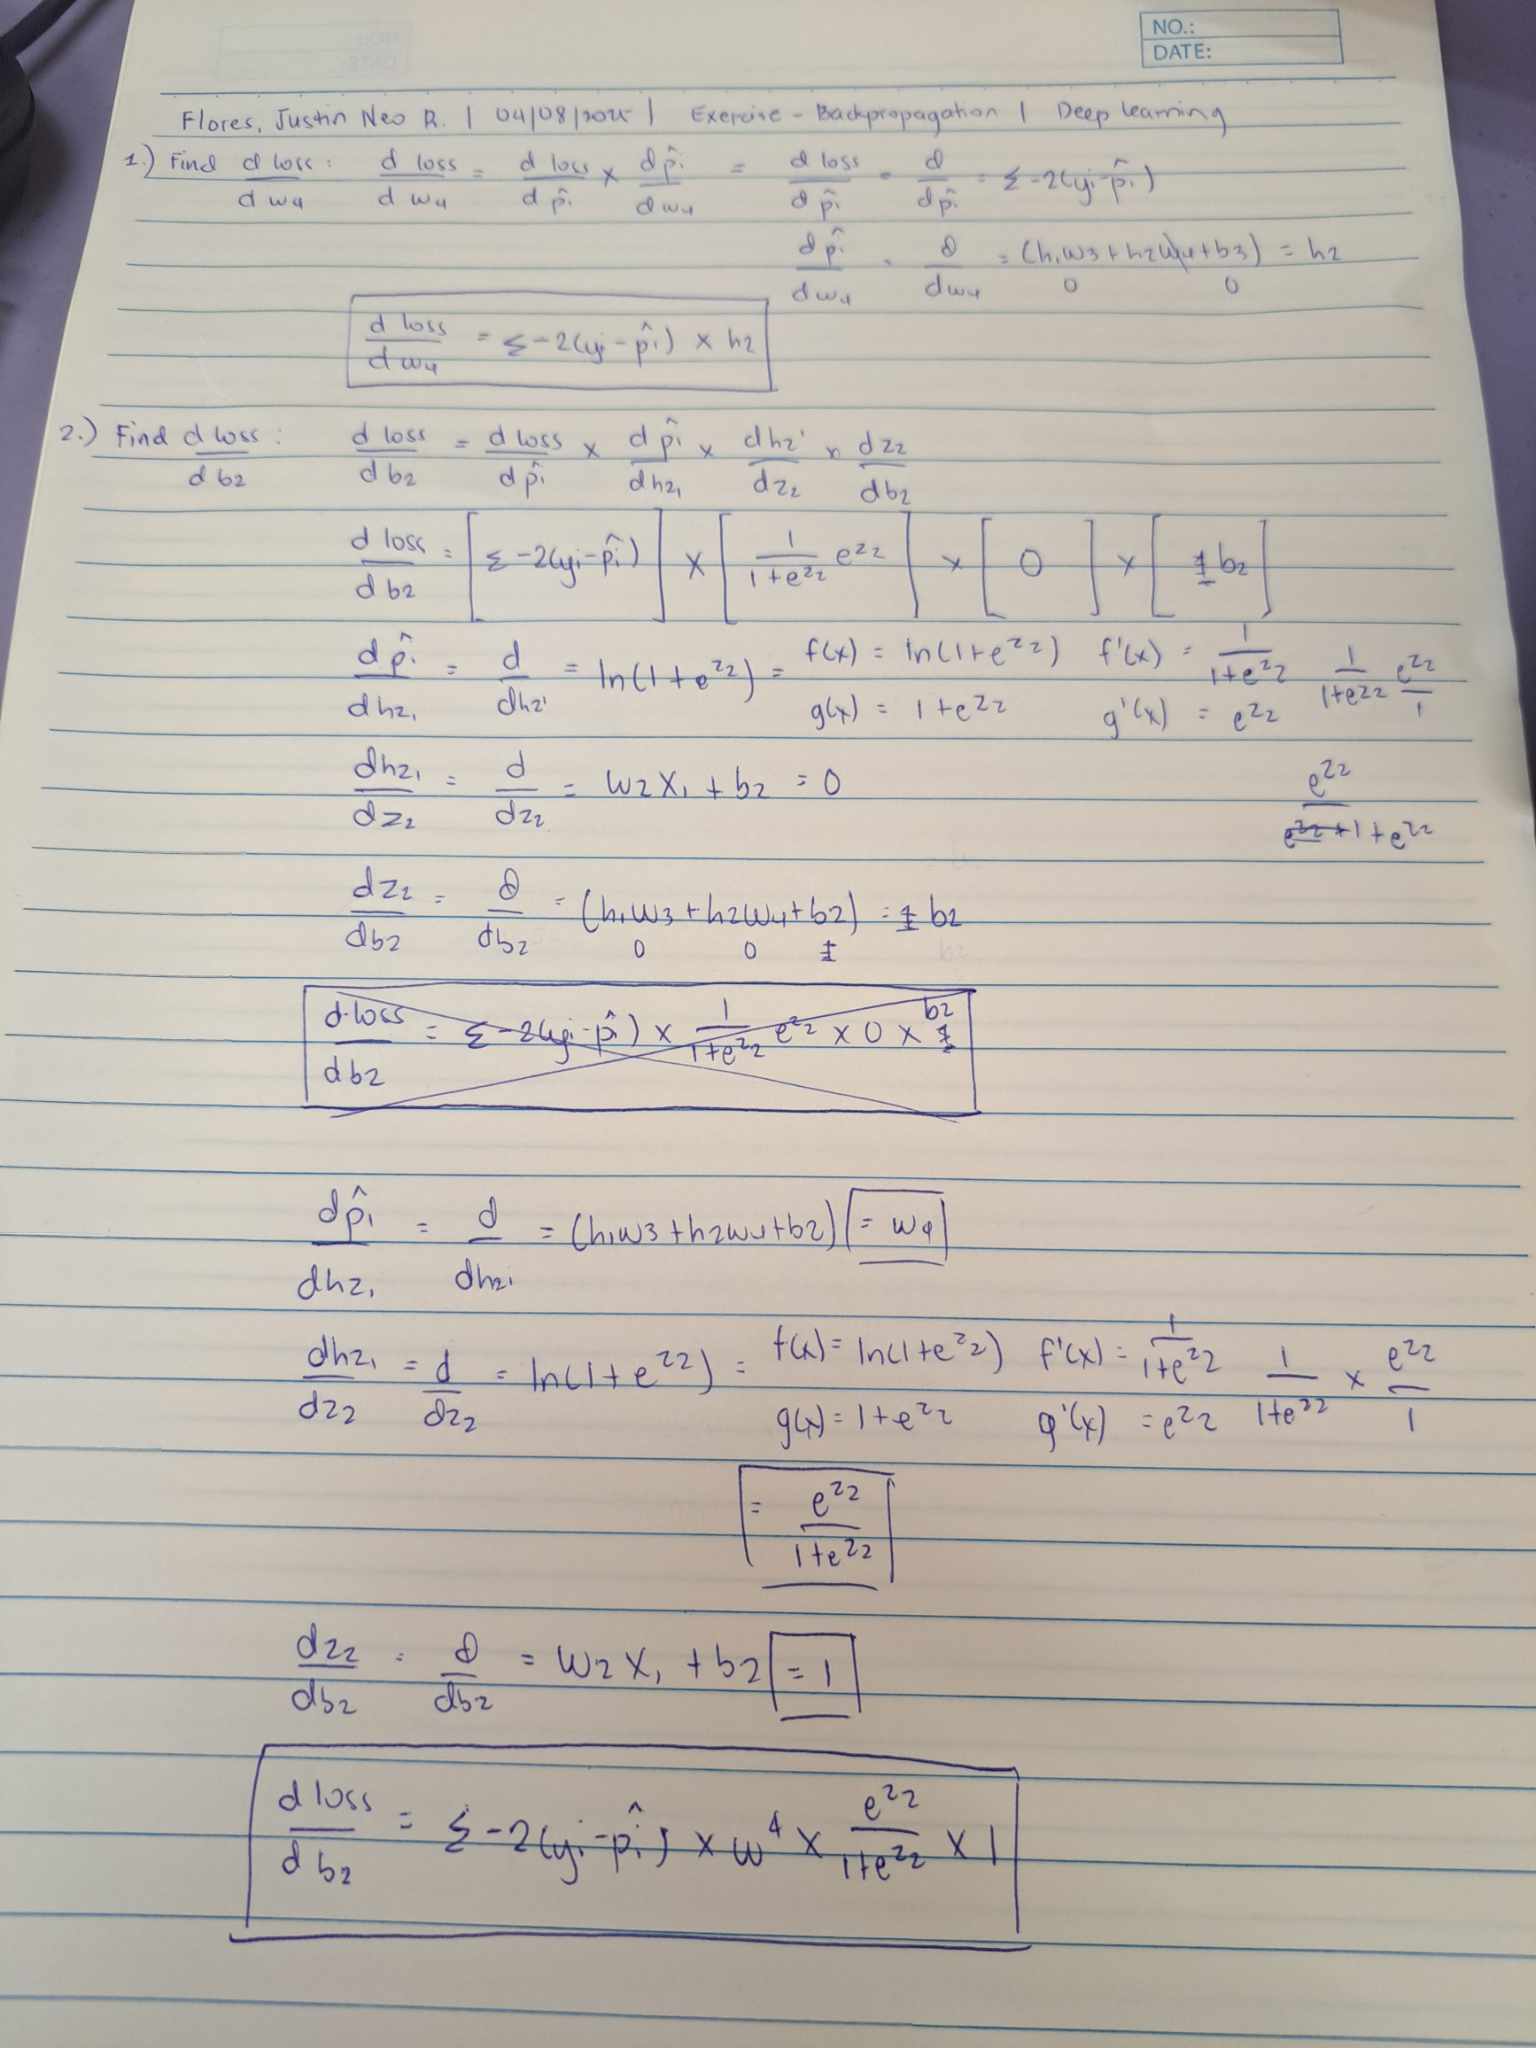 NO.:
DATE:
Flores, Justin Neo R. | 04/08/2025 | Exercise - Backpropagation | Deep Learning
1.) Find d loss / d w4 : d loss / d w4 = d loss / d p̂i × d p̂i / d w4 = d loss / d p̂i = d / d p̂i = Σ -2(yi - p̂i)
d p̂i / d w4 = ∂ / d w4 = (h1w3 + h2w4 + b3) = h2
0 0
d loss / d w4 = Σ -2(yi - p̂i) × h2
2.) Find d loss / d b2 : d loss / d b2 = d loss / d p̂i × d p̂i / d h2,1 × d h2' / d z2 × d z2 / d b2
d loss / d b2 = [Σ -2(yi - p̂i)] × [1 / 1+e^z2 e^z2] × [0] × [1 b2]
d p̂i / d h2,1 = d / d h2' = ln(1+e^z2) = f(x) = ln(1+e^z2) f'(x) = 1 / 1+e^z2 1 / 1+e^z2 e^z2 / 1
g(x) = 1+e^z2 g'(x) = e^z2
d h2,1 / d z2 = d / d z2 = w2x1 + b2 = 0 e^z2 / e^z2 + 1+e^z2
d z2 / d b2 = ∂ / d b2 = (h1w3 + h2w4 + b2) = 1 b2
0 0 1
d loss / d b2 = Σ -2(yi - p̂i) × 1 / 1+e^z2 e^z2 × 0 × 1 b2
d p̂i / d h2,1 = d / d h2,1 = (h1w3 + h2w4 + b2) = w4
d h2,1 / d z2 = d / d z2 = ln(1+e^z2) = f(x) = ln(1+e^z2) f'(x) = 1 / 1+e^z2 1 / 1+e^z2 × e^z2 / 1
g(x) = 1+e^z2 g'(x) = e^z2
= e^z2 / 1+e^z2
d z2 / d b2 = ∂ / d b2 = w2x1 + b2 = 1
d loss / d b2 = Σ -2(yi - p̂i) × w^4 × e^z2 / 1+e^z2 × 1